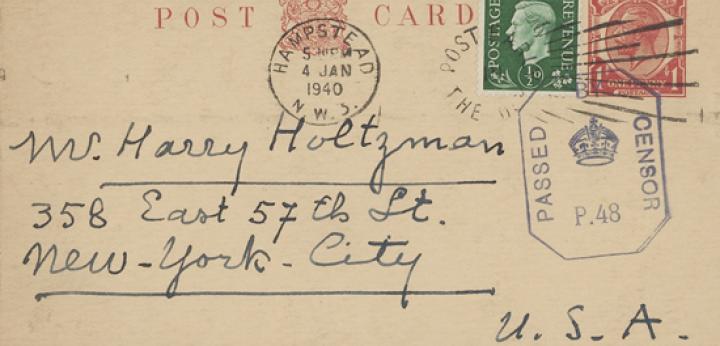 POST CARD
HAMPSTEAD
4 JAN
1940
N.W.3.
POSTAGE REVENUE
½D
1 1
ONE PENNY
POST
THE
PASSED BY CENSOR
P.48
Mr. Harry Holtzman
358 East 57th St.
New-York-City
U.S.A.